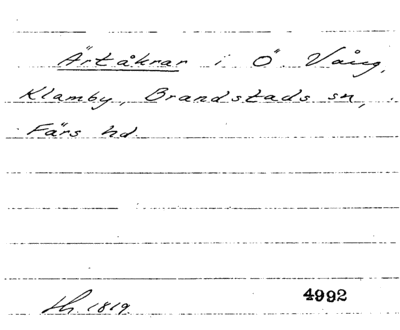 Ärtåkrar i Ö Vång,
Klamby, Brandstads sn,
Färs hd
lh. 1819
4992